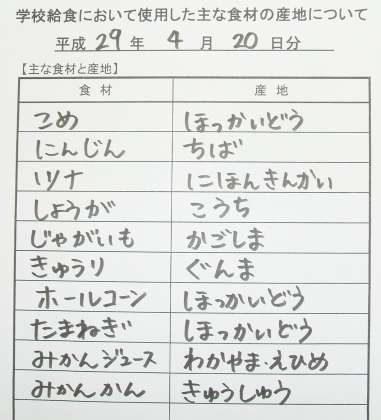 学校給食において使用した主な食材の産地について
平成 29 年 4 月 20 日分
【主な食材と産地】
食材 産地
こめ ほっかいどう
にんじん ちば
ツナ にほんきんかい
しょうが こうち
じゃがいも かごしま
きゅうり ぐんま
ホールコーン ほっかいどう
たまねぎ ほっかいどう
みかんジュース わかやま・えひめ
みかんかん きゅうしゅう